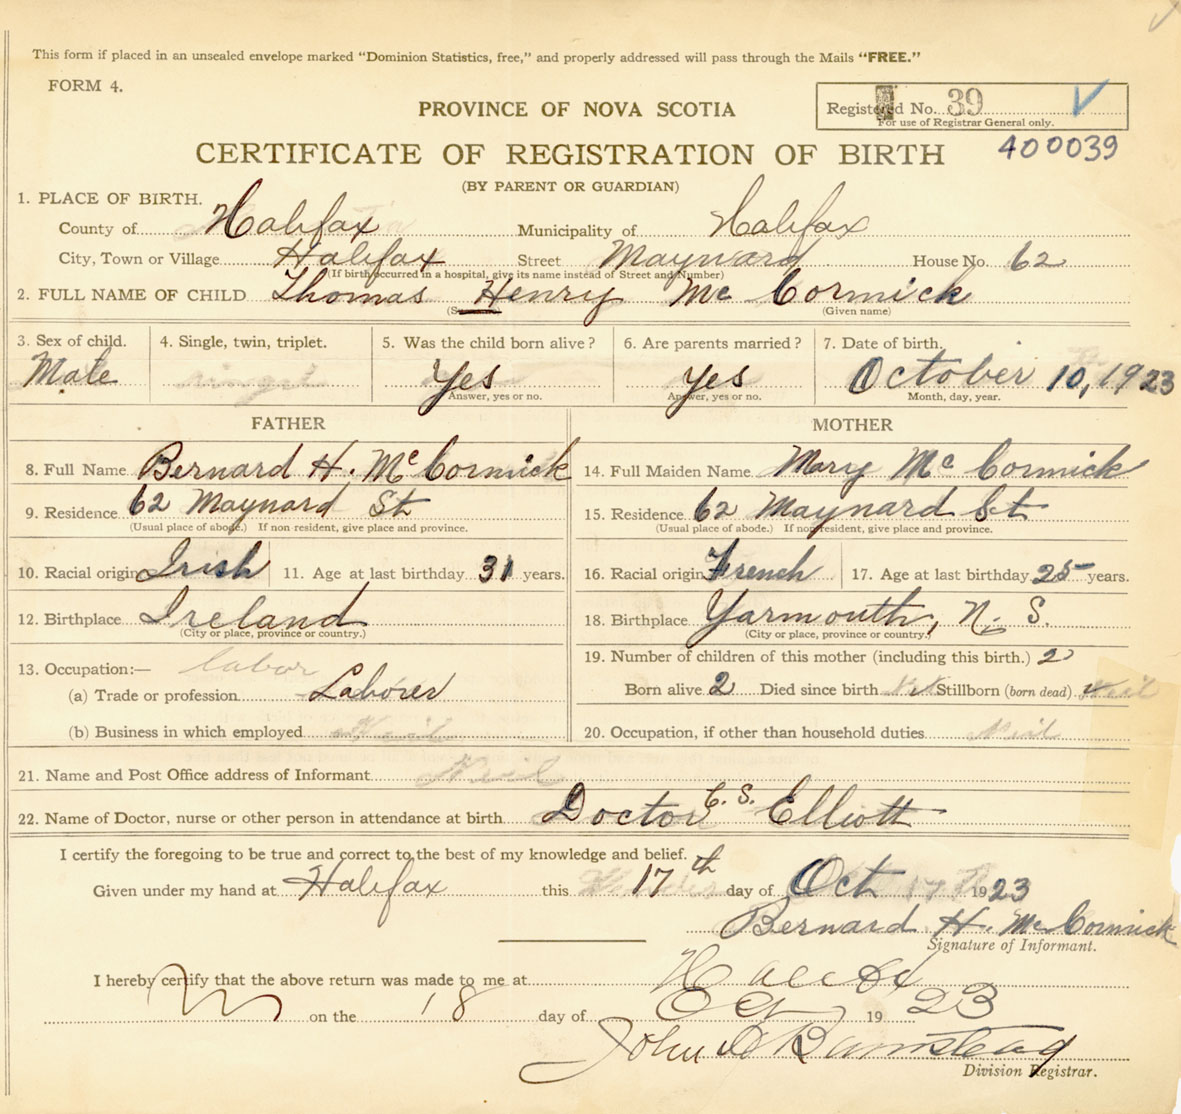 This form if placed in an unsealed envelope marked "Dominion Statistics, free," and properly addressed will pass through the Mails "FREE."
FORM 4.
PROVINCE OF NOVA SCOTIA
Registered No. 39
For use of Registrar General only.
CERTIFICATE OF REGISTRATION OF BIRTH
400039
(BY PARENT OR GUARDIAN)
1. PLACE OF BIRTH.
County of Halifax Municipality of Halifax
City, Town or Village Halifax Street Maynard House No. 62
(If birth occurred in a hospital, give its name instead of Street and Number)
2. FULL NAME OF CHILD Thomas Henry Mc Cormick
(Given name)
3. Sex of child. 4. Single, twin, triplet. 5. Was the child born alive? 6. Are parents married? 7. Date of birth.
Male Yes Yes October 10, 1923
Answer, yes or no. Answer, yes or no. Month, day, year.
FATHER MOTHER
8. Full Name Bernard H. Mc Cormick 14. Full Maiden Name Mary Mc Cormick
9. Residence 62 Maynard St 15. Residence 62 Maynard St
(Usual place of abode.) If non resident, give place and province. (Usual place of abode.) If non resident, give place and province.
10. Racial origin Irish 11. Age at last birthday 31 years. 16. Racial origin French 17. Age at last birthday 25 years.
12. Birthplace Ireland 18. Birthplace Yarmouth, N. S.
(City or place, province or country.) (City or place, province or country.)
13. Occupation:— labor 19. Number of children of this mother (including this birth.) 2
(a) Trade or profession Laborer Born alive 2 Died since birth Stillborn (born dead) Neil
(b) Business in which employed Neil 20. Occupation, if other than household duties Neil
21. Name and Post Office address of Informant Neil
22. Name of Doctor, nurse or other person in attendance at birth Doctor C. S. Elliott
I certify the foregoing to be true and correct to the best of my knowledge and belief.
Given under my hand at Halifax this 17th day of Oct 1923
Bernard H. Mc Cormick
Signature of Informant.
I hereby certify that the above return was made to me at Halifax
on the 18 day of Oct 19 23
John Barnstead
Division Registrar.